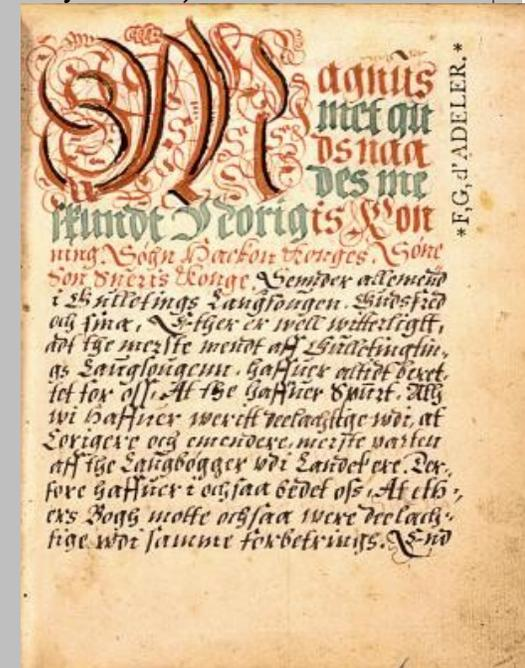 Magnus
met gu
ds naa
des me
skundt Norigis Kon
ning Søgn Hackon Konges. Søne
Søn Sueris Konge. Sennder allemend
i Gulletings Laugsongen. Gudsfred
och sina, Ether er well witterligtt,
adt the merste mendt aff Gulletingsin,
gs Laugsongenn. haffuer altidt beret,
tet for oss. At the haffuer Spurt. Alls
wi Haffuer weritt deelachtige wdi, at
Corigere och emendere, merste parten
aff the Laugbøgger wdi Landet ere. Der,
fore haffuer i ochsaa bedet oss, At eth,
ers Bogh motte ochsaa were deelach,
tige wdi samme forbetrings. End
*F,G,d'ADELER.*